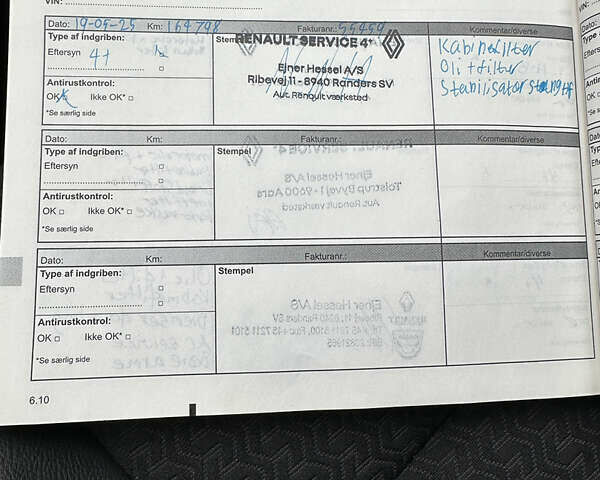 VIN:
Dato: 19-05-25 Km: 164798 Fakturanr.: 55459 Kommentar/diverse
Type af indgriben: Stempel
RENAULT SERVICE 4+
Eftersyn 4+
Ejner Hessel A/S
Ribevej 11 - 8940 Randers SV
Aut. Renault værksted
Kabinefilter
Oli+filter
Stabilisator
Antirustkontrol:
OK Ikke OK*
*Se særlig side
Dato: Km: Fakturanr.: Kommentar/diverse
Type af indgriben: Stempel
Eftersyn
Antirustkontrol:
OK Ikke OK*
*Se særlig side
Dato: Km: Fakturanr.: Kommentar/diverse
Type af indgriben: Stempel
Eftersyn
Antirustkontrol:
OK Ikke OK*
*Se særlig side
6.10